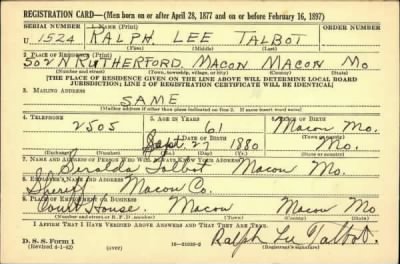 REGISTRATION CARD—(Men born on or after April 28, 1877 and on or before February 16, 1897)
SERIAL NUMBER 1. NAME (Print) ORDER NUMBER
U 1524 RALPH LEE TALBOT
(First) (Middle) (Last)
2. PLACE OF RESIDENCE (Print)
502 N RUTHERFORD. MACON MACON MO
(Number and street) (Town, township, village, or city) (County) (State)
[THE PLACE OF RESIDENCE GIVEN ON THE LINE ABOVE WILL DETERMINE LOCAL BOARD
JURISDICTION; LINE 2 OF REGISTRATION CERTIFICATE WILL BE IDENTICAL]
3. MAILING ADDRESS
SAME
[Mailing address if other than place indicated on line 2. If same insert word same]
4. TELEPHONE 5. AGE IN YEARS 6. PLACE OF BIRTH
2505 61 Macon Mo.
DATE OF BIRTH
Sept. 27 1880 Mo.
(Exchange) (Number) (Mo.) (Day) (Yr.) (State or country)
7. NAME AND ADDRESS OF PERSON WHO WILL ALWAYS KNOW YOUR ADDRESS
Talbot Macon Mo.
8. EMPLOYER'S NAME AND ADDRESS
Sheriff Macon Co.
9. PLACE OF EMPLOYMENT OR BUSINESS
Court House. Macon Macon Mo
(Number and street or R. F. D. number) (Town) (County) (State)
I AFFIRM THAT I HAVE VERIFIED ABOVE ANSWERS AND THAT THEY ARE TRUE.
D. S. S. Form 1
(Revised 4-1-42) (over) Ralph Lee Talbot.